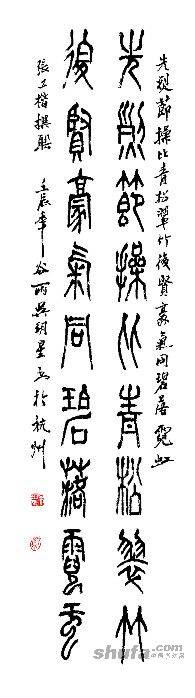 先烈節操比青松翠竹後賢豪氣同碧落霓虹
先烈節操比青松翠竹
後賢豪氣同碧落霓虹
張工楷撰聯 壬辰年谷雨吳星書於杭州
shufa.com